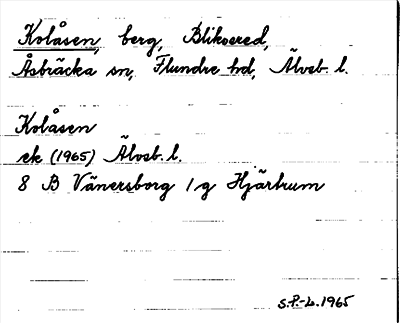 Kolåsen, berg, Bliksered,
Åsbräcka sn, Flundre hd, Älvsb. l.
Kolåsen
ek (1965) Älvsb. l.
8 B Vänersborg 1 g Hjärtum
S.P.-L. 1965